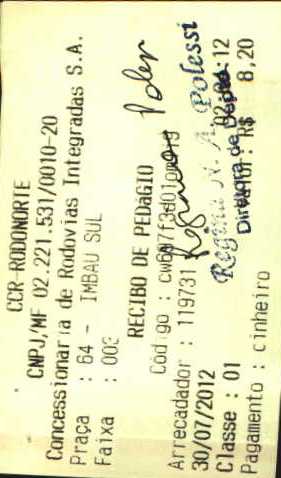 CCR-RODONORTE
CNPJ/MF 02.221.531/0010-20
Concessionária de Rodovias Integradas S.A.
Praça : 64 - IMBAU SUL
Faixa : 003
RECIBO DE PEDÁGIO
Código :
Arrecadador : 119731
30/07/2012
Classe : 01
R$ 8,20
Pagamento : cinheiro
Regina N. A. Polessi
Diretora de